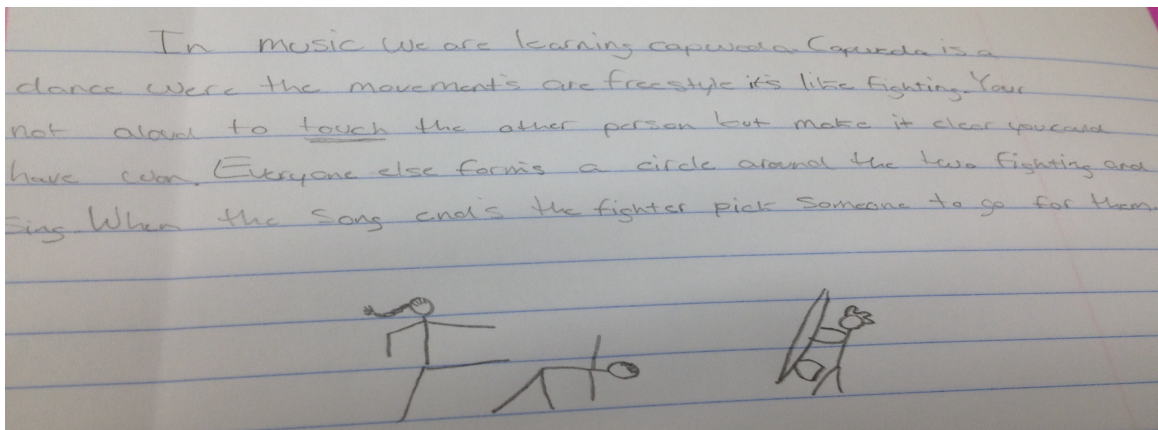 In music we are learning capueda. Capueda is a
dance were the movement's are freestyle it's like fighting. Your
not aloud to touch the other person but make it clear you could
have won. Everyone else form's a circle around the two fighting and
sing. When the song end's the fighter pick someone to go for them.